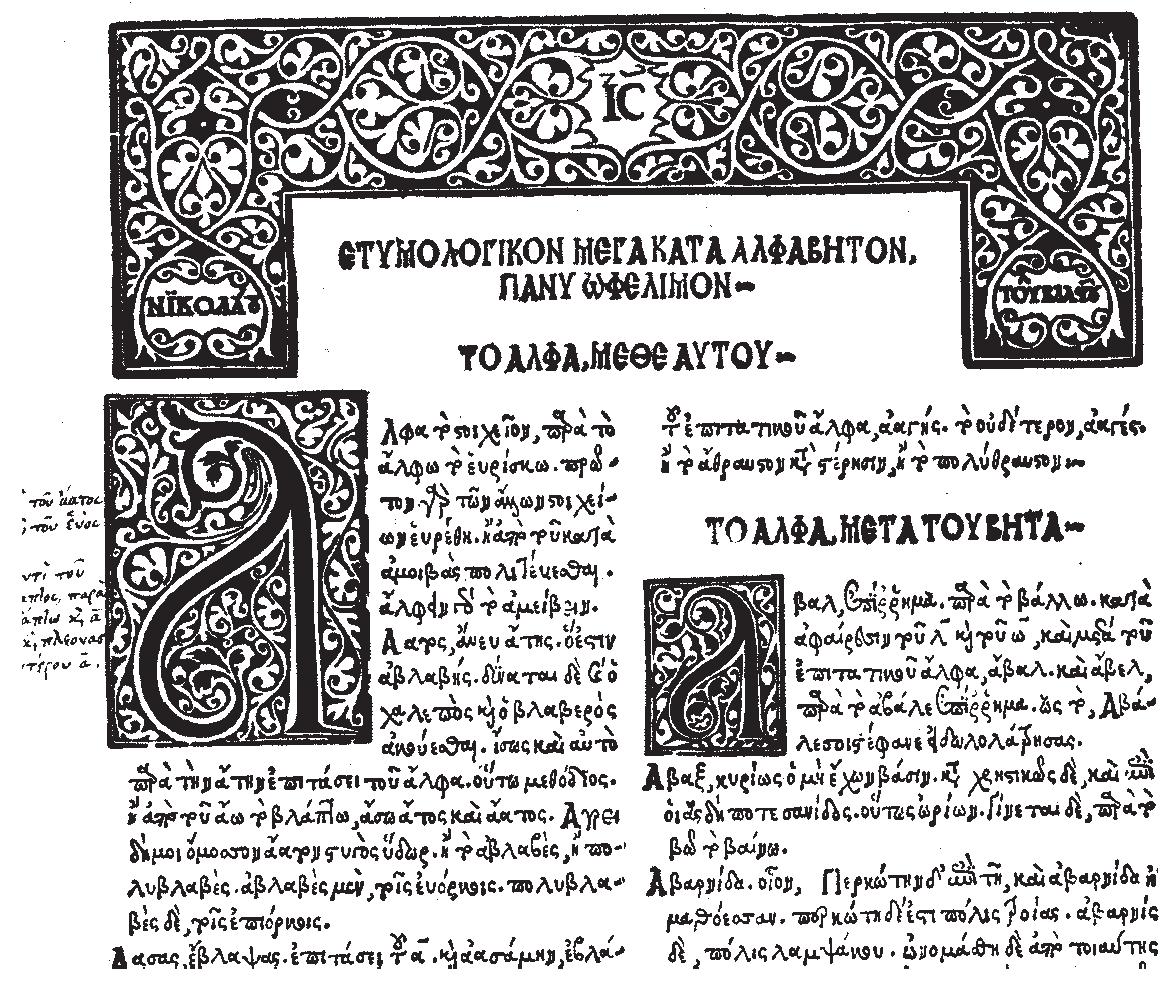 ΙC
ΝΪΚΟΛΆȣ
ΤΟΥ͂ΒΛΑΣΤΟΥ͂
ΕΤΥΜΟΛΟΓΙΚΟΝ ΜΕΓΑ ΚΑΤΑ ΑΛΦΑΒΗΤΟΝ,
ΠΑΝΥ ΩΦΕΛΙΜΟΝ
ΤΟ ΑΛΦΑ, ΜΕΘ ΕΑΥΤΟΥ
Αλφα τὸ στοιχεῖον, παρὰ τὸ
ἄλφω τὸ ἑυρίσκω. πρῶ-
τον γὰρ τῶν ἄλλων στοιχεί-
ων ἑυρέθη. ἢ ἀπὸ τοῦ κατὰ
ἀμοιβὰς πολιτεύεσθαι.
ἀλφεῖν γὰρ τὸ ἀμείβειν.
Αατος, ἄνευ ἄτης. ὅ ἐστιν
ἀβλαβής. δύναται δὲ καὶ ὁ
χαλεπὸς καὶ ὁ βλαβερὸς
ἀκούεσθαι. ἴσως καὶ αὐτὸ
παρὰ τὴν ἄτην ἐπιτάσει τοῦ ἄλφα. οὕτω μεθόδιος.
ἢ ἀπὸ τοῦ ἀῶ τὸ βλάπτω, ἄσω ἄτος καὶ ἄατος. Αγρει
δή μοι ὄμοσον ἄατον στυγὸς ὕδωρ. ἢ τὸ ἀβλαβὲς, ἢ πο-
λυβλαβὲς. ἀβλαβὲς μὲν, τοῖς ἐυόρκοις. πολυβλα-
βὲς δὲ, τοῖς ἐπιόρκοις.
Αασας, ἔβλαψας. ἐπιτάσει τοῦ ᾱ. καὶ ἀασάμην, ἐβλά-
τοῦ ἐπιτατικοῦ ἄλφα, ἀαγής. τὸ οὐδέτερον, ἀαγές.
ἢ τὸ ἄθραυστον κατὰ στέρησιν, ἢ τὸ πολύθραυστον
ΤΟ ΑΛΦΑ, ΜΕΤΑ ΤΟΥ ΒΗΤΑ
Αβαλ, ἐπίρρημα. παρὰ τὸ βάλλω. κατὰ
ἀφαίρεσιν τοῦ λ καὶ τοῦ ω, καὶ μετὰ τοῦ
ἐπιτατικοῦ ἄλφα, ἄβαλ. καὶ ἄβελ,
παρὰ τὸ ἀβάλε ἐπίρρημα. ὡς τὸ, Αβά-
λε σοῖς ἔφανε εἰδωλολάτρησας.
Αβαξ, κυρίως ὁ μὴ ἔχων βάσιν. καταχρηστικῶς δὲ, καὶ ἐπὶ
οἵας δήποτε σανίδος. οὕτως ὠρίων. γίνεται δὲ, παρὰ τὸ
βῶ τὸ βαίνω.
Αβαρνίδα. οἷον, Περκώτην δ' ἐπὶ τῇ, καὶ ἀβαρνίδα ἠ
μαθόεσσαν. περκώτη δέ ἐστι πόλις τροίας. ἀβαρνὶς
δὲ, πόλις λαμψάκου. ὠνομάσθη δὲ ἀπὸ τοιαύτης
τοῦ ἄατος
τοῦ ἑνὸς
τοῦ
παρὰ
πλεονασ